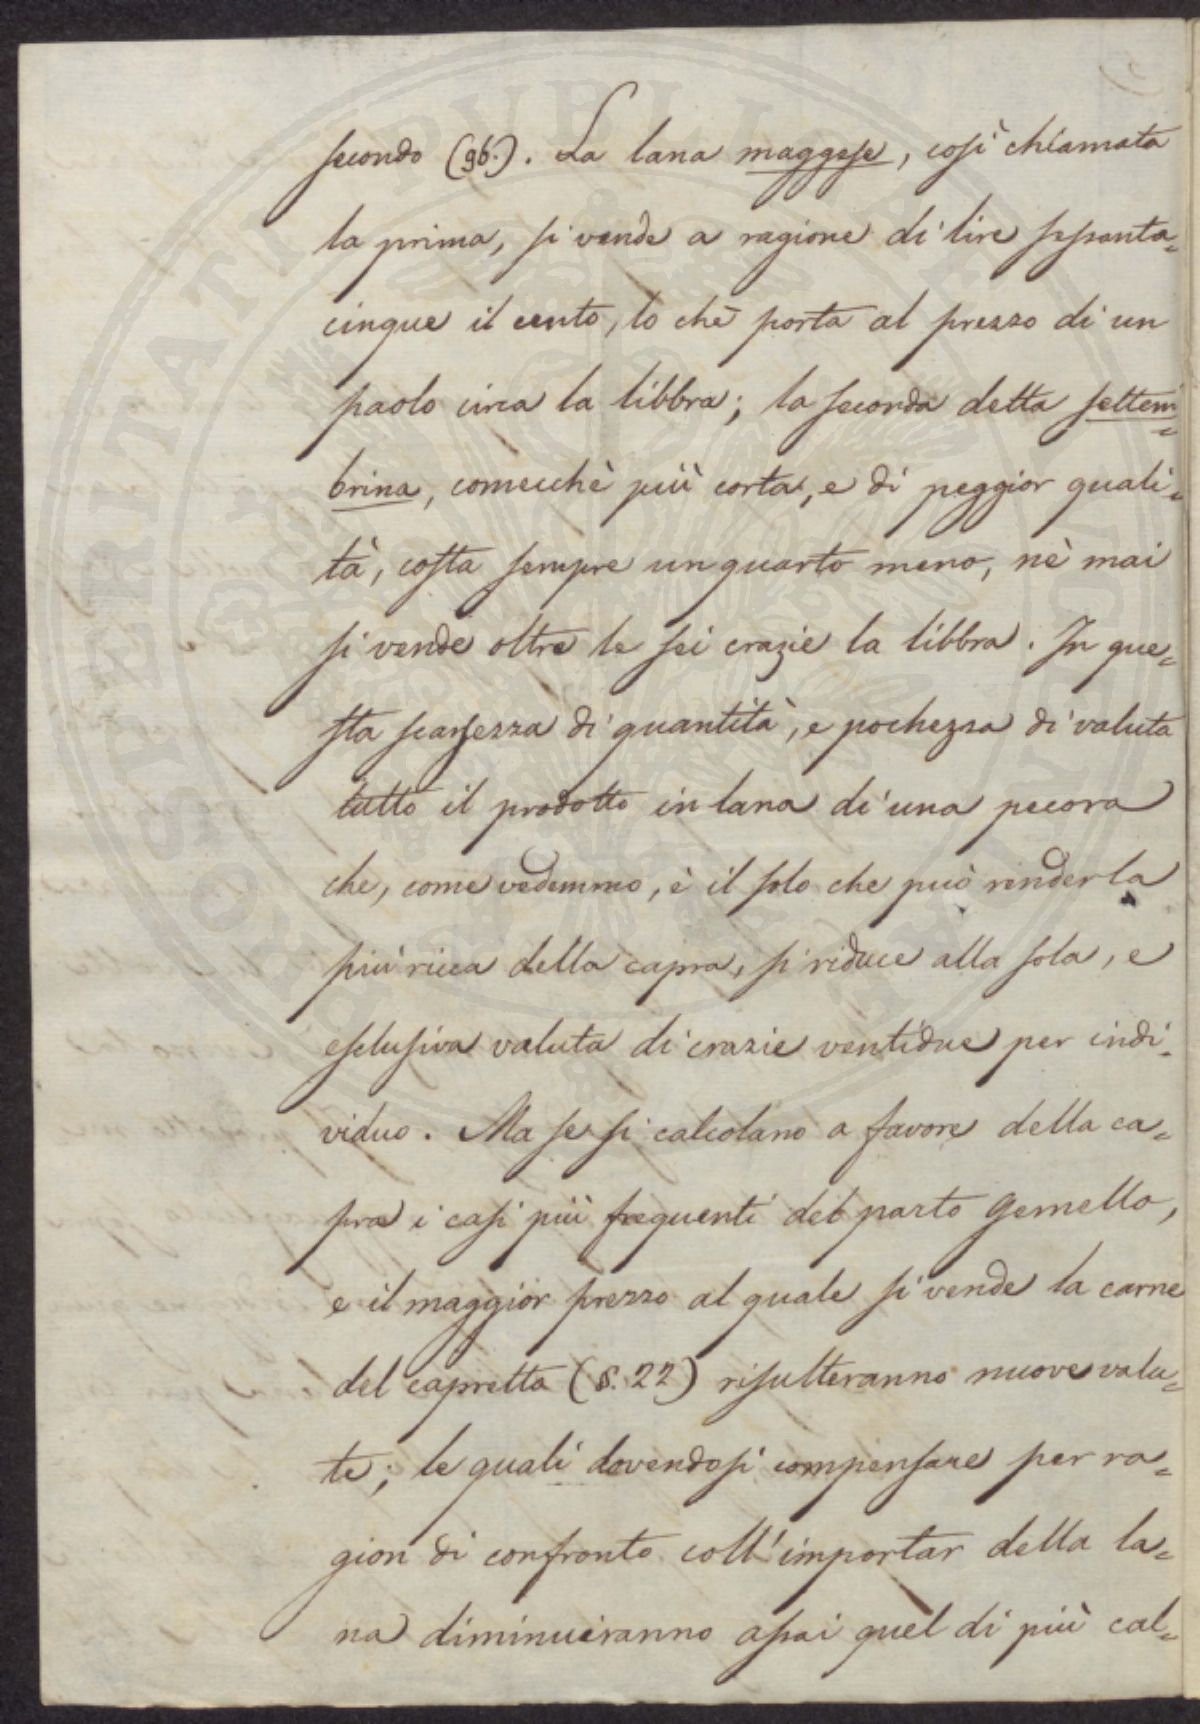 secondo (96.). La lana maggese, così chiamata
la prima, si vende a ragione di lire sessanta=
cinque il cento, lo chè porta al prezzo di un
paolo circa la libbra; la seconda detta settem=
brina, comecchè più corta, e di peggior quali=
tà, costa sempre un quarto meno, nè mai
si vende oltre le sei crazie la libbra. In que=
sta scarsezza di quantità, e pochezza di valuta
tutto il prodotto in lana di una pecora
che, come vedemmo, è il solo che può renderla
più ricca della capra, si riduce alla sola, e
esclusiva valuta di crazie ventidue per indi=
viduo. Ma se si calcolano a favore della ca=
pra i casi più frequenti del parto gemello,
e il maggior prezzo al quale si vende la carne
del capretto (§. 22) risulteranno nuove valu=
te; le quali dovendosi compensare per ra=
gion di confronto coll'importar della la=
na diminuiranno assai quel di più cal=